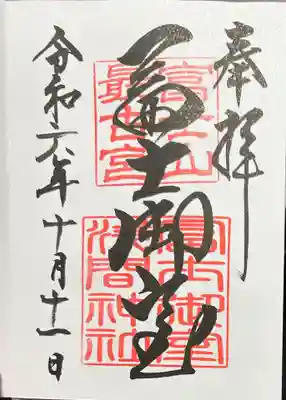 奉拝
冨士御室
富士山
最古宮
冨士御室
浅間神社
令和六年十月十一日